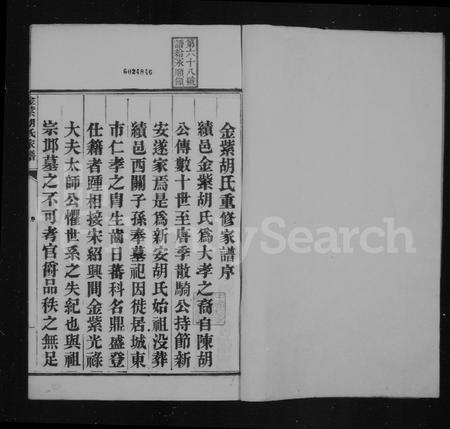 第六十八號
譜給承順領
6024846
金紫胡氏重修家譜序
績邑金紫胡氏為大孝之裔自陳胡
公傳數十世至唐季散騎公持節新
安遂家焉是為新安胡氏始祖没葬
績邑西關子孫奉墓祀因徙居城東
市仁孝之冑生齒日蕃科名鼎盛登
仕籍者踵相接宋紹興間金紫光祿
大夫太師公懼世系之失紀也與祖
宗邱墓之不可考官爵品秩之無足
金紫胡氏家譜
MySearch